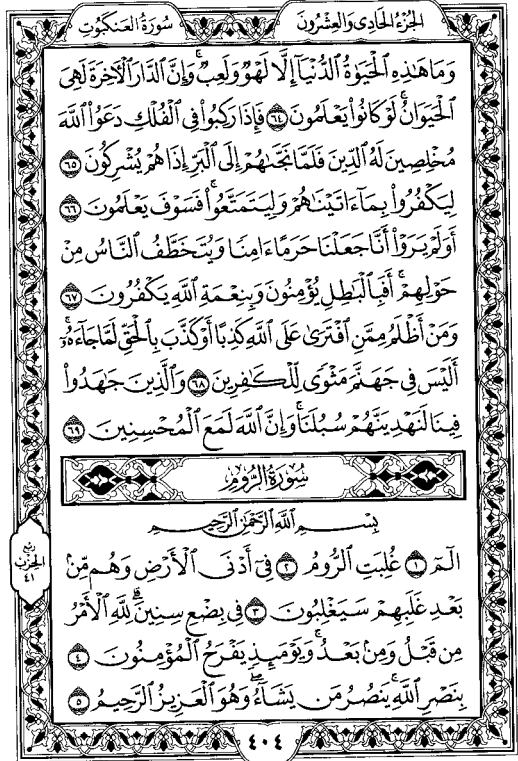 الجزء الحادي والعشرون
سورة العنكبوت
وَمَا هَٰذِهِ الْحَيَوٰةُ الدُّنْيَآ إِلَّا لَهْوٌ وَلَعِبٌ ۚ وَإِنَّ الدَّارَ الْآخِرَةَ لَهِىَ
الْحَيَوَانُ ۚ لَوْ كَانُوا۟ يَعْلَمُونَ ٦٤ فَإِذَا رَكِبُوا۟ فِى الْفُلْكِ دَعَوُا۟ اللَّهَ
مُخْلِصِينَ لَهُ الدِّينَ فَلَمَّا نَجَّىٰهُمْ إِلَى الْبَرِّ إِذَا هُمْ يُشْرِكُونَ ٦٥
لِيَكْفُرُوا۟ بِمَآ ءَاتَيْنَٰهُمْ وَلِيَتَمَتَّعُوا۟ ۖ فَسَوْفَ يَعْلَمُونَ ٦٦
أَوَلَمْ يَرَوْا۟ أَنَّا جَعَلْنَا حَرَمًا ءَامِنًا وَيُتَخَطَّفُ النَّاسُ مِنْ
حَوْلِهِمْ ۚ أَفَبِالْبَٰطِلِ يُؤْمِنُونَ وَبِنِعْمَةِ اللَّهِ يَكْفُرُونَ ٦٧
وَمَنْ أَظْلَمُ مِمَّنِ افْتَرَىٰ عَلَى اللَّهِ كَذِبًا أَوْ كَذَّبَ بِالْحَقِّ لَمَّا جَآءَهُۥٓ ۚ
أَلَيْسَ فِى جَهَنَّمَ مَثْوًى لِّلْكَٰفِرِينَ ٦٨ وَالَّذِينَ جَٰهَدُوا۟
فِينَا لَنَهْدِيَنَّهُمْ سُبُلَنَا ۚ وَإِنَّ اللَّهَ لَمَعَ الْمُحْسِنِينَ ٦٩
سُورَةُ الرُّومِ
بِسْمِ اللَّهِ الرَّحْمَٰنِ الرَّحِيمِ
الٓمٓ ١ غُلِبَتِ الرُّومُ ٢ فِىٓ أَدْنَى الْأَرْضِ وَهُم مِّنۢ
بَعْدِ غَلَبِهِمْ سَيَغْلِبُونَ ٣ فِى بِضْعِ سِنِينَ ۗ لِلَّهِ الْأَمْرُ
مِن قَبْلُ وَمِنۢ بَعْدُ ۚ وَيَوْمَئِذٍ يَفْرَحُ الْمُؤْمِنُونَ ٤
بِنَصْرِ اللَّهِ ۚ يَنصُرُ مَن يَشَآءُ ۖ وَهُوَ الْعَزِيزُ الرَّحِيمُ ٥
ربع
الحزب
٤١
٤٠٤